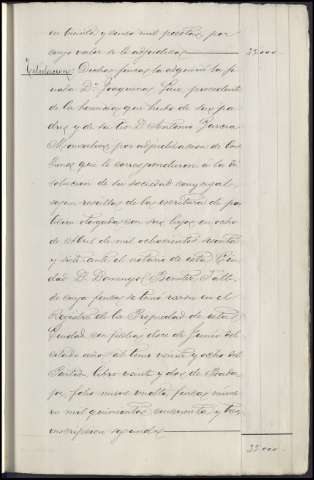 en treinta y cinco mil pesetas, por
cuyo valor se le adjudican 35.000..
Titulacion Dichas fincas las adquirió la fi-
nada Dª Joaquina procedente
de la herencia que hubo de sus pa-
dres y de su tio D. Antonio Garcia
por adjudicacion de los
bienes que le correspondieron á la di-
solucion de la sociedad conyugal,
segun resulta de la escritura de par-
ticion otorgada con sus hijos en ocho
de Abril de mil ochocientos setenta
y siete ante el notario de esta Ciu-
dad D. Domingo Benitez
de cuyas fincas se tomó razon en el
Registro de la Propiedad de esta
Ciudad con fecha doce de Junio del
citado año, al tomo veinte y ocho del
Partido, libro veinte y dos de
folio nueve vuelto, fincas núme-
ro mil quinientos cincuenta y tres
inscripcion segunda
35.000..